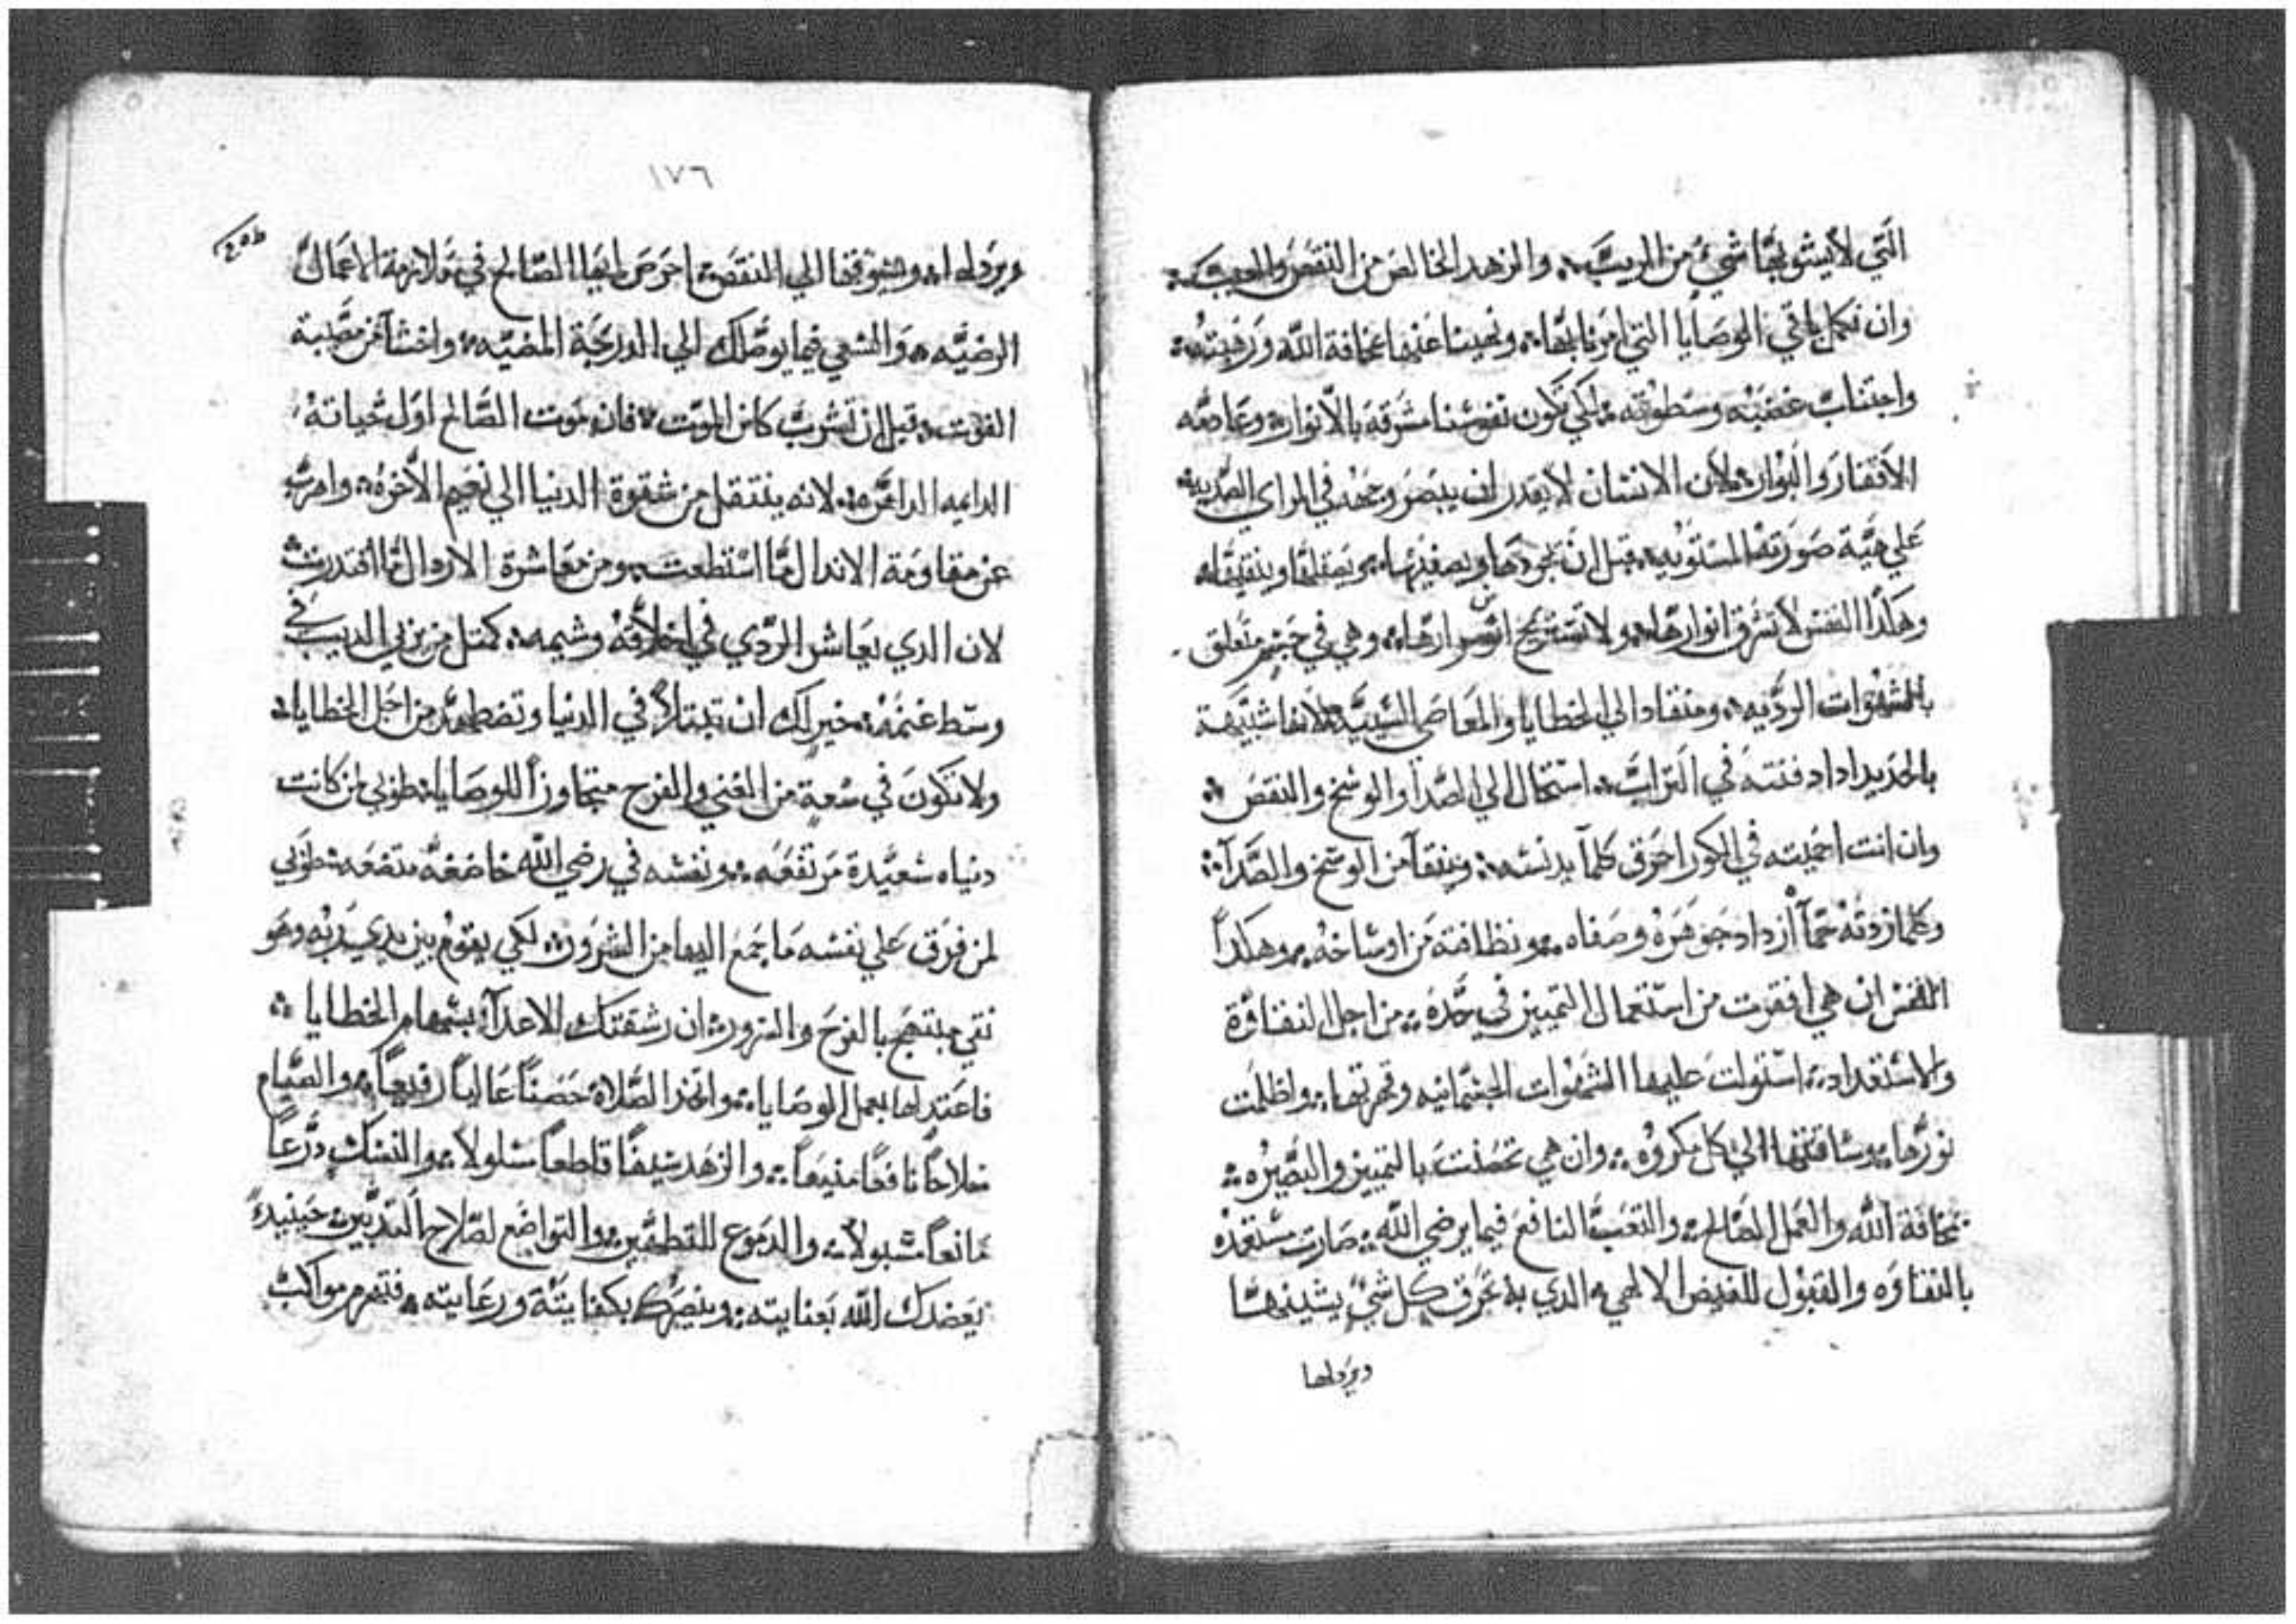 التي لا يشوبها شيء من الريب والزهد الخالص من النقص والعيب
وان نكمل باقي الوصايا التي امرنا بها ونهينا عنها مخافة الله ورهبته
واجتناب غضبه وسطوته لكي تكون نفوسنا مشرقه بالانوار وعادمه
الافتقار والبوار لان الانسان لا يقدر ان يبصر وجهه في المراي الصديه
علي هية صورتها المستويه قبل ان يجودها ويصفيها ويصقلها وينقيها
وهكدا النفس لا تشرق انوارها ولا تستريح اسرارها وهي في جسم متعلق
بالشهوات الرديه ومنقاد الي الخطايا والمعاصي السييه لانها شبيهة
بالحديد ادا دفنته في التراب استحال الي الصدا والوسخ والنقص
وان انت احميته في الكور احرق كلما يدنسه وينقا من الوسخ والصدا
وكلما زدته حما ازداد جوهره وصفاه ونظافته من اوساخه وهكدا
النفس ان هي افقرت من استعمال التمييز في حده من اجل النقاوة
والاستعداد استولت عليها الشهوات الجسمانيه وقهرتها واظلمت
نورها وساقتها الي كل مكروه وان هي تحصنت بالتمييز والبصيره
مخافة الله والعمل الصالح والتعب النافع فيما يرضي الله صارت مستعده
بالنقاوه والقبول للفيض الالهي الدي به تحرق كل شيء يشينها
ويردلها
١٧٦
ويردلها ويشوقها الي النقص احرص ايها الصالح في ملازمة الاعمال
الرضيه والسعي فيما يوصلك الي الدرجة المضيه واخشا من مصيبة
الفوت قبل ان تشرب كاس الموت فان موت الصالح اول حياته
الدايمه لانه ينتقل من شقوة الدنيا الي نعيم الاخره واهرب
عن مقاومة الاندال ما استطعت ومن معاشرة الاردال ما اقتدرت
لان الدي يعاشر الردي في اخلاقه وشيمه كمتل من يربي الديب في
وسط غنمه خير لك ان تبتلا في الدنيا وتضطهد من اجل الخطايا
ولا تكون في سعة من الغني والفرح متجاوزاً للوصايا طوبي لمن كانت
دنياه سعيدة مرتفعه ونفسه في رضي الله خاضعه متضعه طوبي
لمن فرق علي نفسه ما جمع اليها من الشرور لكي يقوم بين يدي ربه وهو
نقي مبتهج بالفرح والسرور ان رشقتك الاعداء بسهام الخطايا
فاعتد لها بعمل الوصايا واتخذ الصلاة حصناً عالياً رفيعاً والصيام
سلاحاً نافعاً منيعاً والزهد سيفاً قاطعاً مسلولاً والنسك درعاً
مانعاً مسبولاً والدموع للتطهير والتواضع لصلاح التدبير حينيد
يعضدك الله بعنايته وينصرك بكفايته ورعايته فتهزم مواكب